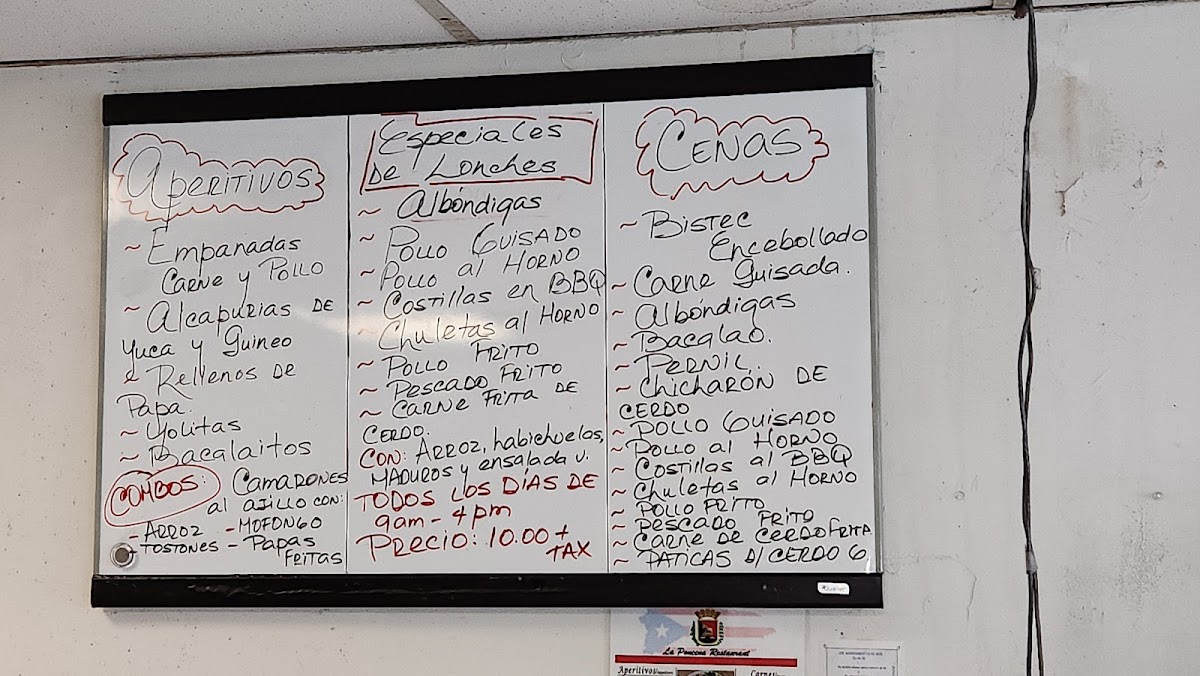 Aperitivos
~ Empanadas
Carne y Pollo
~ Alcapurias de
Yuca y Guineo
~ Rellenos de
Papa.
~ Yolitas
~ Bacalaitos
COMBOS: Camarones
al ajillo con:
- Arroz - Mofongo
- Tostones - Papas
Fritas
Especiales
De Lonches
~ Albóndigas
~ Pollo Guisado
~ Pollo al Horno
~ Costillas en BBQ
~ Chuletas al Horno
~ Pollo Frito
~ Pescado Frito
~ Carne Frita de
Cerdo.
Con: Arroz, habichuelas,
Maduros y ensalada v.
TODOS LOS DÍAS DE
9am - 4pm
Precio: 10.00 +
TAX
Cenas
~ Bistec
Encebollado
~ Carne Guisada.
~ Albóndigas
~ Bacalao.
~ Pernil.
~ Chicharón de
Cerdo
~ Pollo Guisado
~ Pollo al Horno
~ Costillas al BBQ
~ Chuletas al Horno
~ Pollo Frito
~ Pescado Frito
~ Carne de Cerdo Frita
~ Paticas d/ Cerdo G
La Poncena Restaurant
Aperitivos